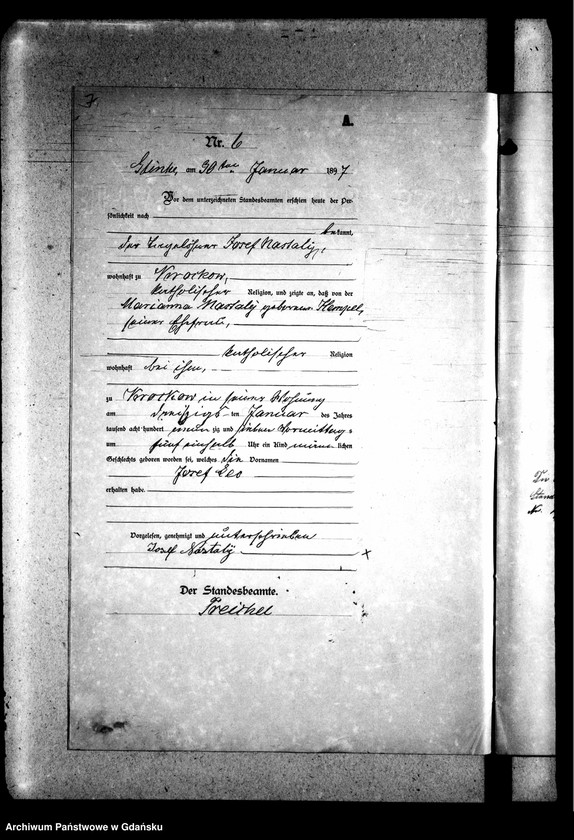 Nr. 6
am 30ten Januar 1897
Vor dem unterzeichneten Standesbeamten erschien heute der Per-
sönlichkeit nach
bekannt,
der Tagelöhner Josef Nastaly,
wohnhaft zu Krockow,
katholischer Religion, und zeigte an, daß von der
Marianna Nastaly geborenen Hempel,
seiner Ehefrau,
katholischer Religion
wohnhaft bei ihm,
zu Krockow in seiner Wohnung
am dreißigsten Januar des Jahres
tausend acht hundert neun zig und sieben Vormittags
um fünf einhalb Uhr ein Kind männlichen
Geschlechts geboren worden sei, welches die Vornamen
Josef Leo
erhalten habe.
Vorgelesen, genehmigt und unterschrieben
Josef Nastaly
Der Standesbeamte.
Archiwum Państwowe w Gdańsku